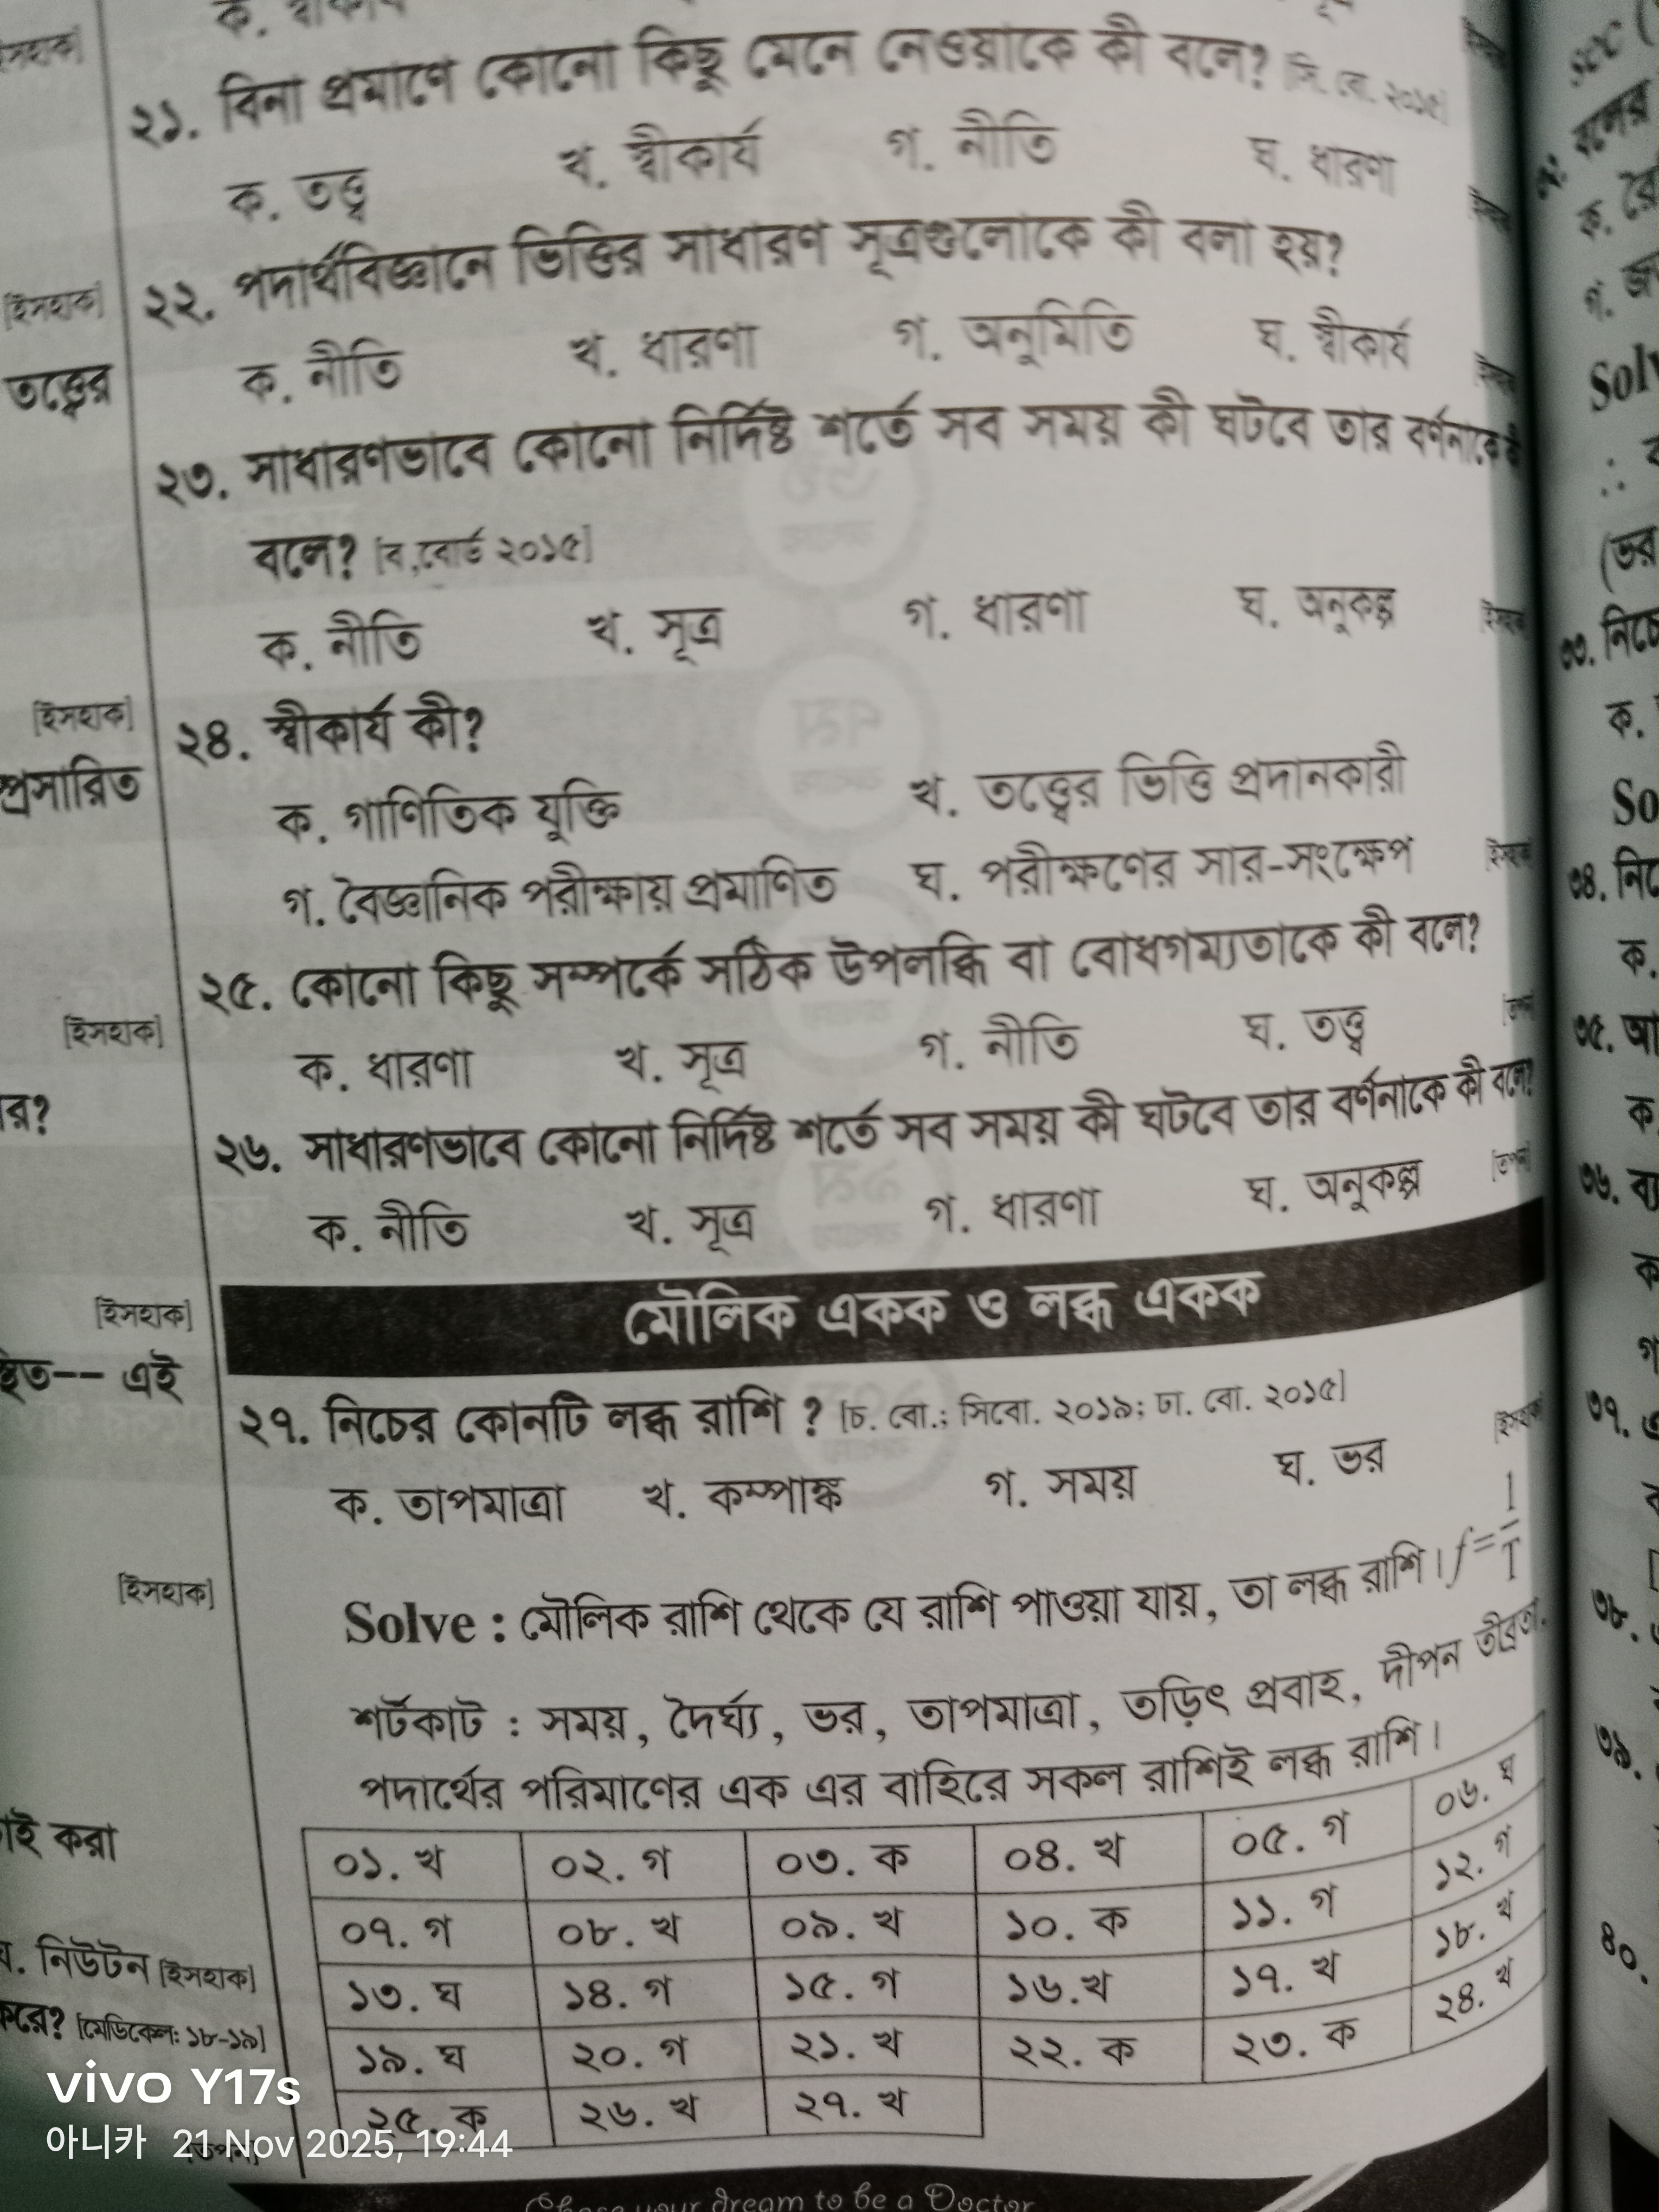 [ইসহাক]
তত্ত্বের
[ইসহাক]
প্রসারিত
[ইসহাক]
[ইসহাক]
এই
[ইসহাক]
করা
নিউটন [ইসহাক]
[মেডিকেল: ১৮-১৯]
২১. বিনা প্রমাণে কোনো কিছু মেনে নেওয়াকে কী বলে? [সি. বো. ২০১৫]
ক. তত্ত্ব খ. স্বীকার্য গ. নীতি ঘ. ধারণা
২২. পদার্থবিজ্ঞানে ভিত্তির সাধারণ সূত্রগুলোকে কী বলা হয়?
ক. নীতি খ. ধারণা গ. অনুমিতি ঘ. স্বীকার্য
২৩. সাধারণভাবে কোনো নির্দিষ্ট শর্তে সব সময় কী ঘটবে তার বর্ণনাকে কী
বলে? [ব,বোর্ড ২০১৫]
ক. নীতি খ. সূত্র গ. ধারণা ঘ. অনুকল্প
২৪. স্বীকার্য কী?
ক. গাণিতিক যুক্তি খ. তত্ত্বের ভিত্তি প্রদানকারী
গ. বৈজ্ঞানিক পরীক্ষায় প্রমাণিত ঘ. পরীক্ষণের সার-সংক্ষেপ
২৫. কোনো কিছু সম্পর্কে সঠিক উপলব্ধি বা বোধগম্যতাকে কী বলে?
ক. ধারণা খ. সূত্র গ. নীতি ঘ. তত্ত্ব
২৬. সাধারণভাবে কোনো নির্দিষ্ট শর্তে সব সময় কী ঘটবে তার বর্ণনাকে কী বলে?
ক. নীতি খ. সূত্র গ. ধারণা ঘ. অনুকল্প
মৌলিক একক ও লব্ধ একক
২৭. নিচের কোনটি লব্ধ রাশি ? [চ. বো.; সিবো. ২০১৯; ঢা. বো. ২০১৫]
ক. তাপমাত্রা খ. কম্পাঙ্ক গ. সময় ঘ. ভর
Solve : মৌলিক রাশি থেকে যে রাশি পাওয়া যায়, তা লব্ধ রাশি। f = 1/T
শর্টকাট : সময়, দৈর্ঘ্য, ভর, তাপমাত্রা, তড়িৎ প্রবাহ, দীপন তীব্রতা,
পদার্থের পরিমাণের এক এর বাহিরে সকল রাশিই লব্ধ রাশি।
০১. খ ০২. গ ০৩. ক ০৪. খ ০৫. গ ০৬. ঘ
০৭. গ ০৮. খ ০৯. খ ১০. ক ১১. গ ১২. গ
১৩. ঘ ১৪. গ ১৫. গ ১৬.খ ১৭. খ ১৮. খ
১৯. ঘ ২০. গ ২১. খ ২২. ক ২৩. ক ২৪. খ
২৫. ক ২৬. খ ২৭. খ
vivo Y17s
아니카 21 Nov 2025, 19:44
your dream to be a Doctor